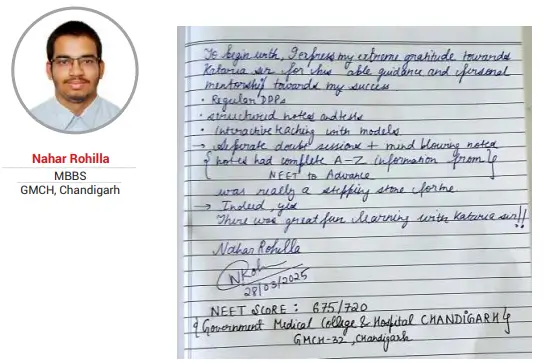 Nahar Rohilla
MBBS
GMCH, Chandigarh
To begin with, I express my extreme gratitude towards
Kataria sir for his able guidance and personal
mentorship towards my success
• Regular DPPs
• structured notes and tests
• interactive teaching with models
→ separate doubt sessions + mind blowing notes
{ notes had complete A-Z information from }
NEET to Advance
was really a stepping stone for me
→ Indeed, yes
There was great fun learning with Kataria sir!!
Nahar Rohilla
28/03/2025
NEET SCORE : 675/720
{ Government Medical College & Hospital CHANDIGARH }
GMCH-32, Chandigarh